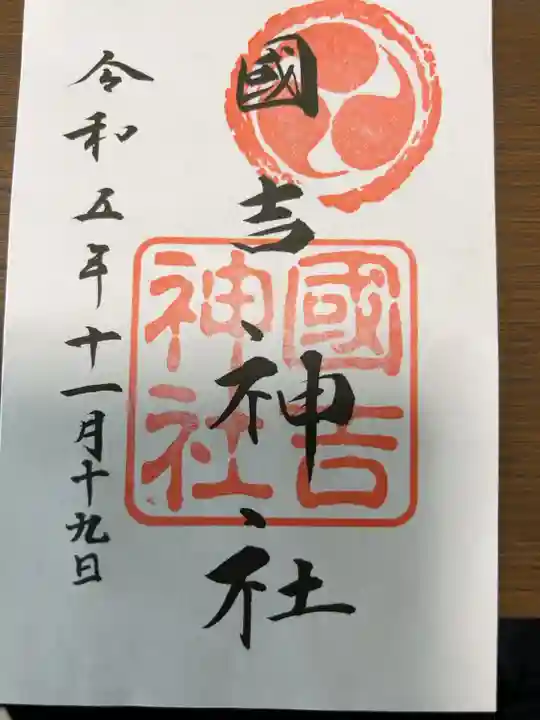 國吉神社
國吉神社
令和五年十一月十九日